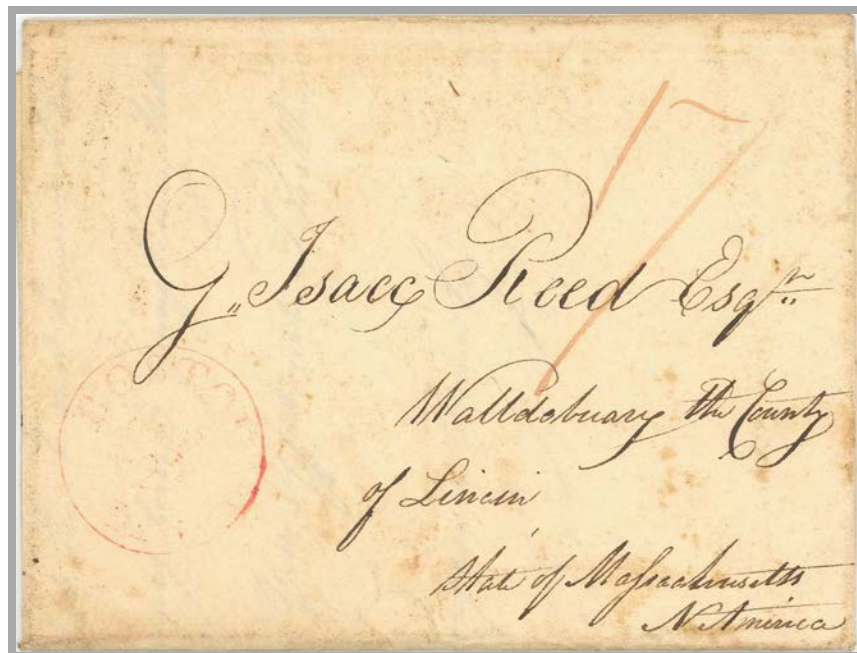 17
G,, Isacc Reed Esqr
Walldobuary the County
of Lincin
State of Massachusetts
N America
BOSTON